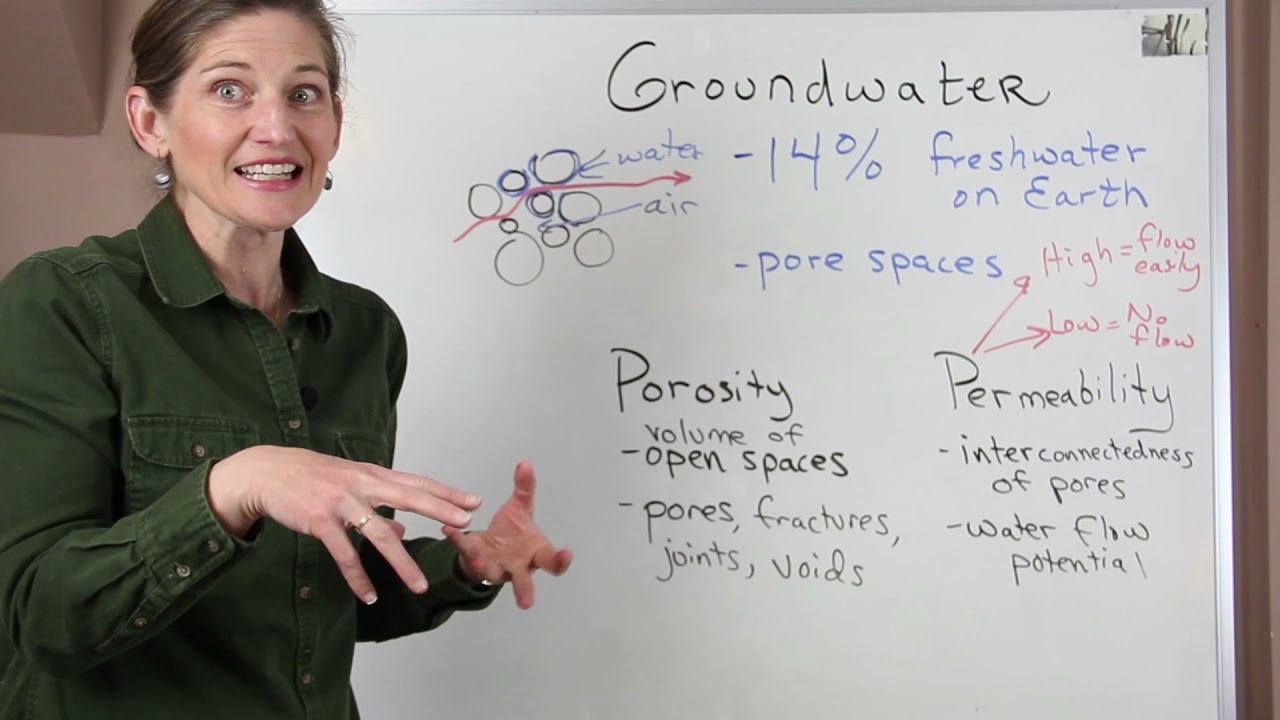 Groundwater
water
air
-14% freshwater
on Earth
-pore spaces
High = flow
easily
Low = No
flow
Porosity
volume of
-open spaces
-pores, fractures,
joints, voids
Permeability
-interconnectedness
of pores
-water flow
potential